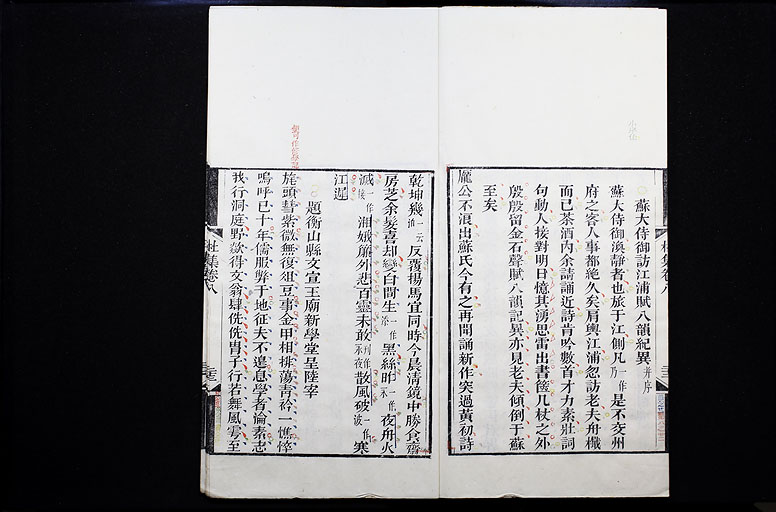 蘇大侍御訪江浦賦八韻紀異并序
蘇大侍御渙靜者也旅于江側凡一作乃是不交州
府之客人事都絕久矣肩輿江浦忽訪老夫舟檝
而已茶酒內余請誦近詩肯吟數首才力素壯詞
句動人接對明日憶其湧思雷出書篋几杖之外
殷殷留金石聲賦八韻記異亦見老夫傾倒于蘇
至矣
龐公不浪出蘇氏今有之再聞誦新作突過黃初詩
乾坤幾反覆揚馬宜同時今晨清鏡中勝食齋
房芝余髮喜却變白間生黑絲昨夜舟火
滅湘娥簾外悲百靈未敢散風破寒
江遲
題衡山縣文宣王廟新學堂呈陸宰
旄頭彗紫微無復俎豆事金甲相排蕩青衿一憔悴
嗚呼已十年儒服弊于地征夫不遑息學者淪素志
我行洞庭野歘得文翁肆侁侁胄子行若舞風雩至
杜集卷八